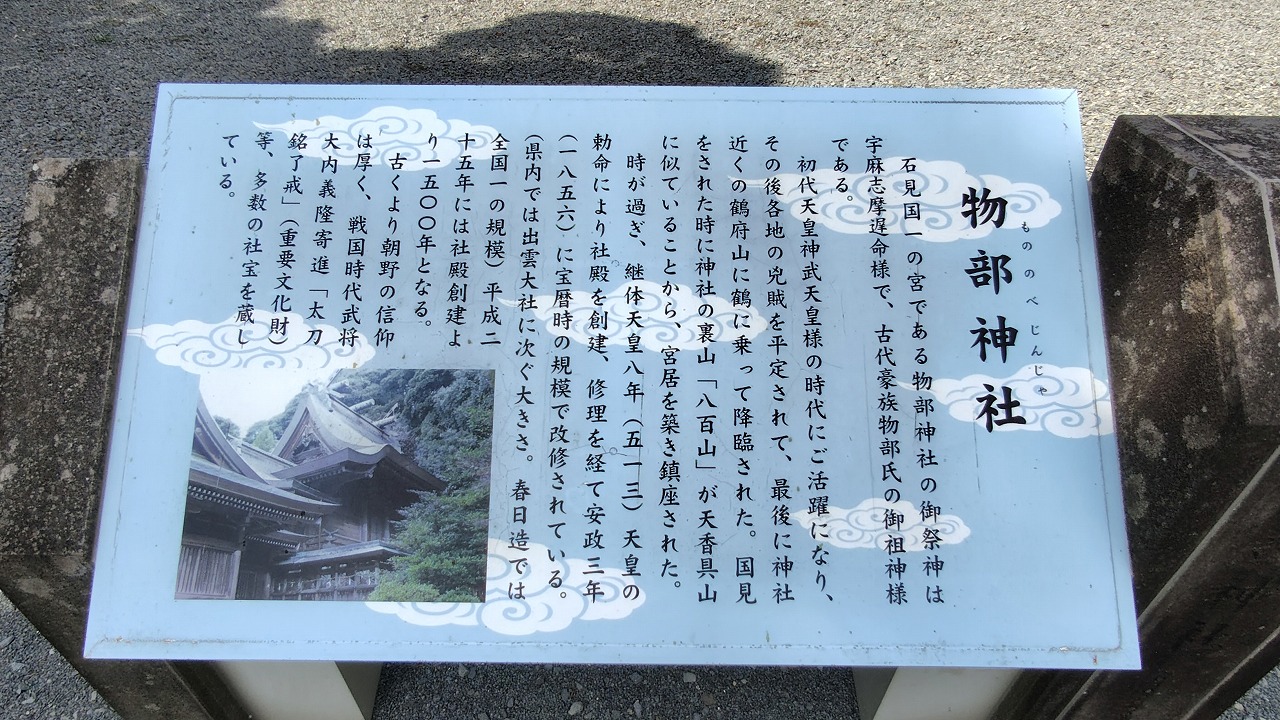 物部神社
もののべじんじゃ
石見国一の宮である物部神社の御祭神は
宇麻志摩遅命様で、古代豪族物部氏の御祖神様
である。
初代天皇神武天皇様の時代にご活躍になり、
その後各地の兇賊を平定されて、最後に神社
近くの鶴府山に鶴に乗って降臨された。国見
をされた時に神社の裏山「八百山」が天香具山
に似ていることから、宮居を築き鎮座された。
時が過ぎ、継体天皇八年（五一三）天皇の
勅命により社殿を創建、修理を経て安政三年
（一八五六）に宝暦時の規模で改修されている。
（県内では出雲大社に次ぐ大きさ。春日造では
全国一の規模）平成二
十五年には社殿創建よ
り一五〇〇年となる。
古くより朝野の信仰
は厚く、戦国時代武将
大内義隆寄進「太刀
銘了戒」（重要文化財）
等、多数の社宝を蔵し
ている。